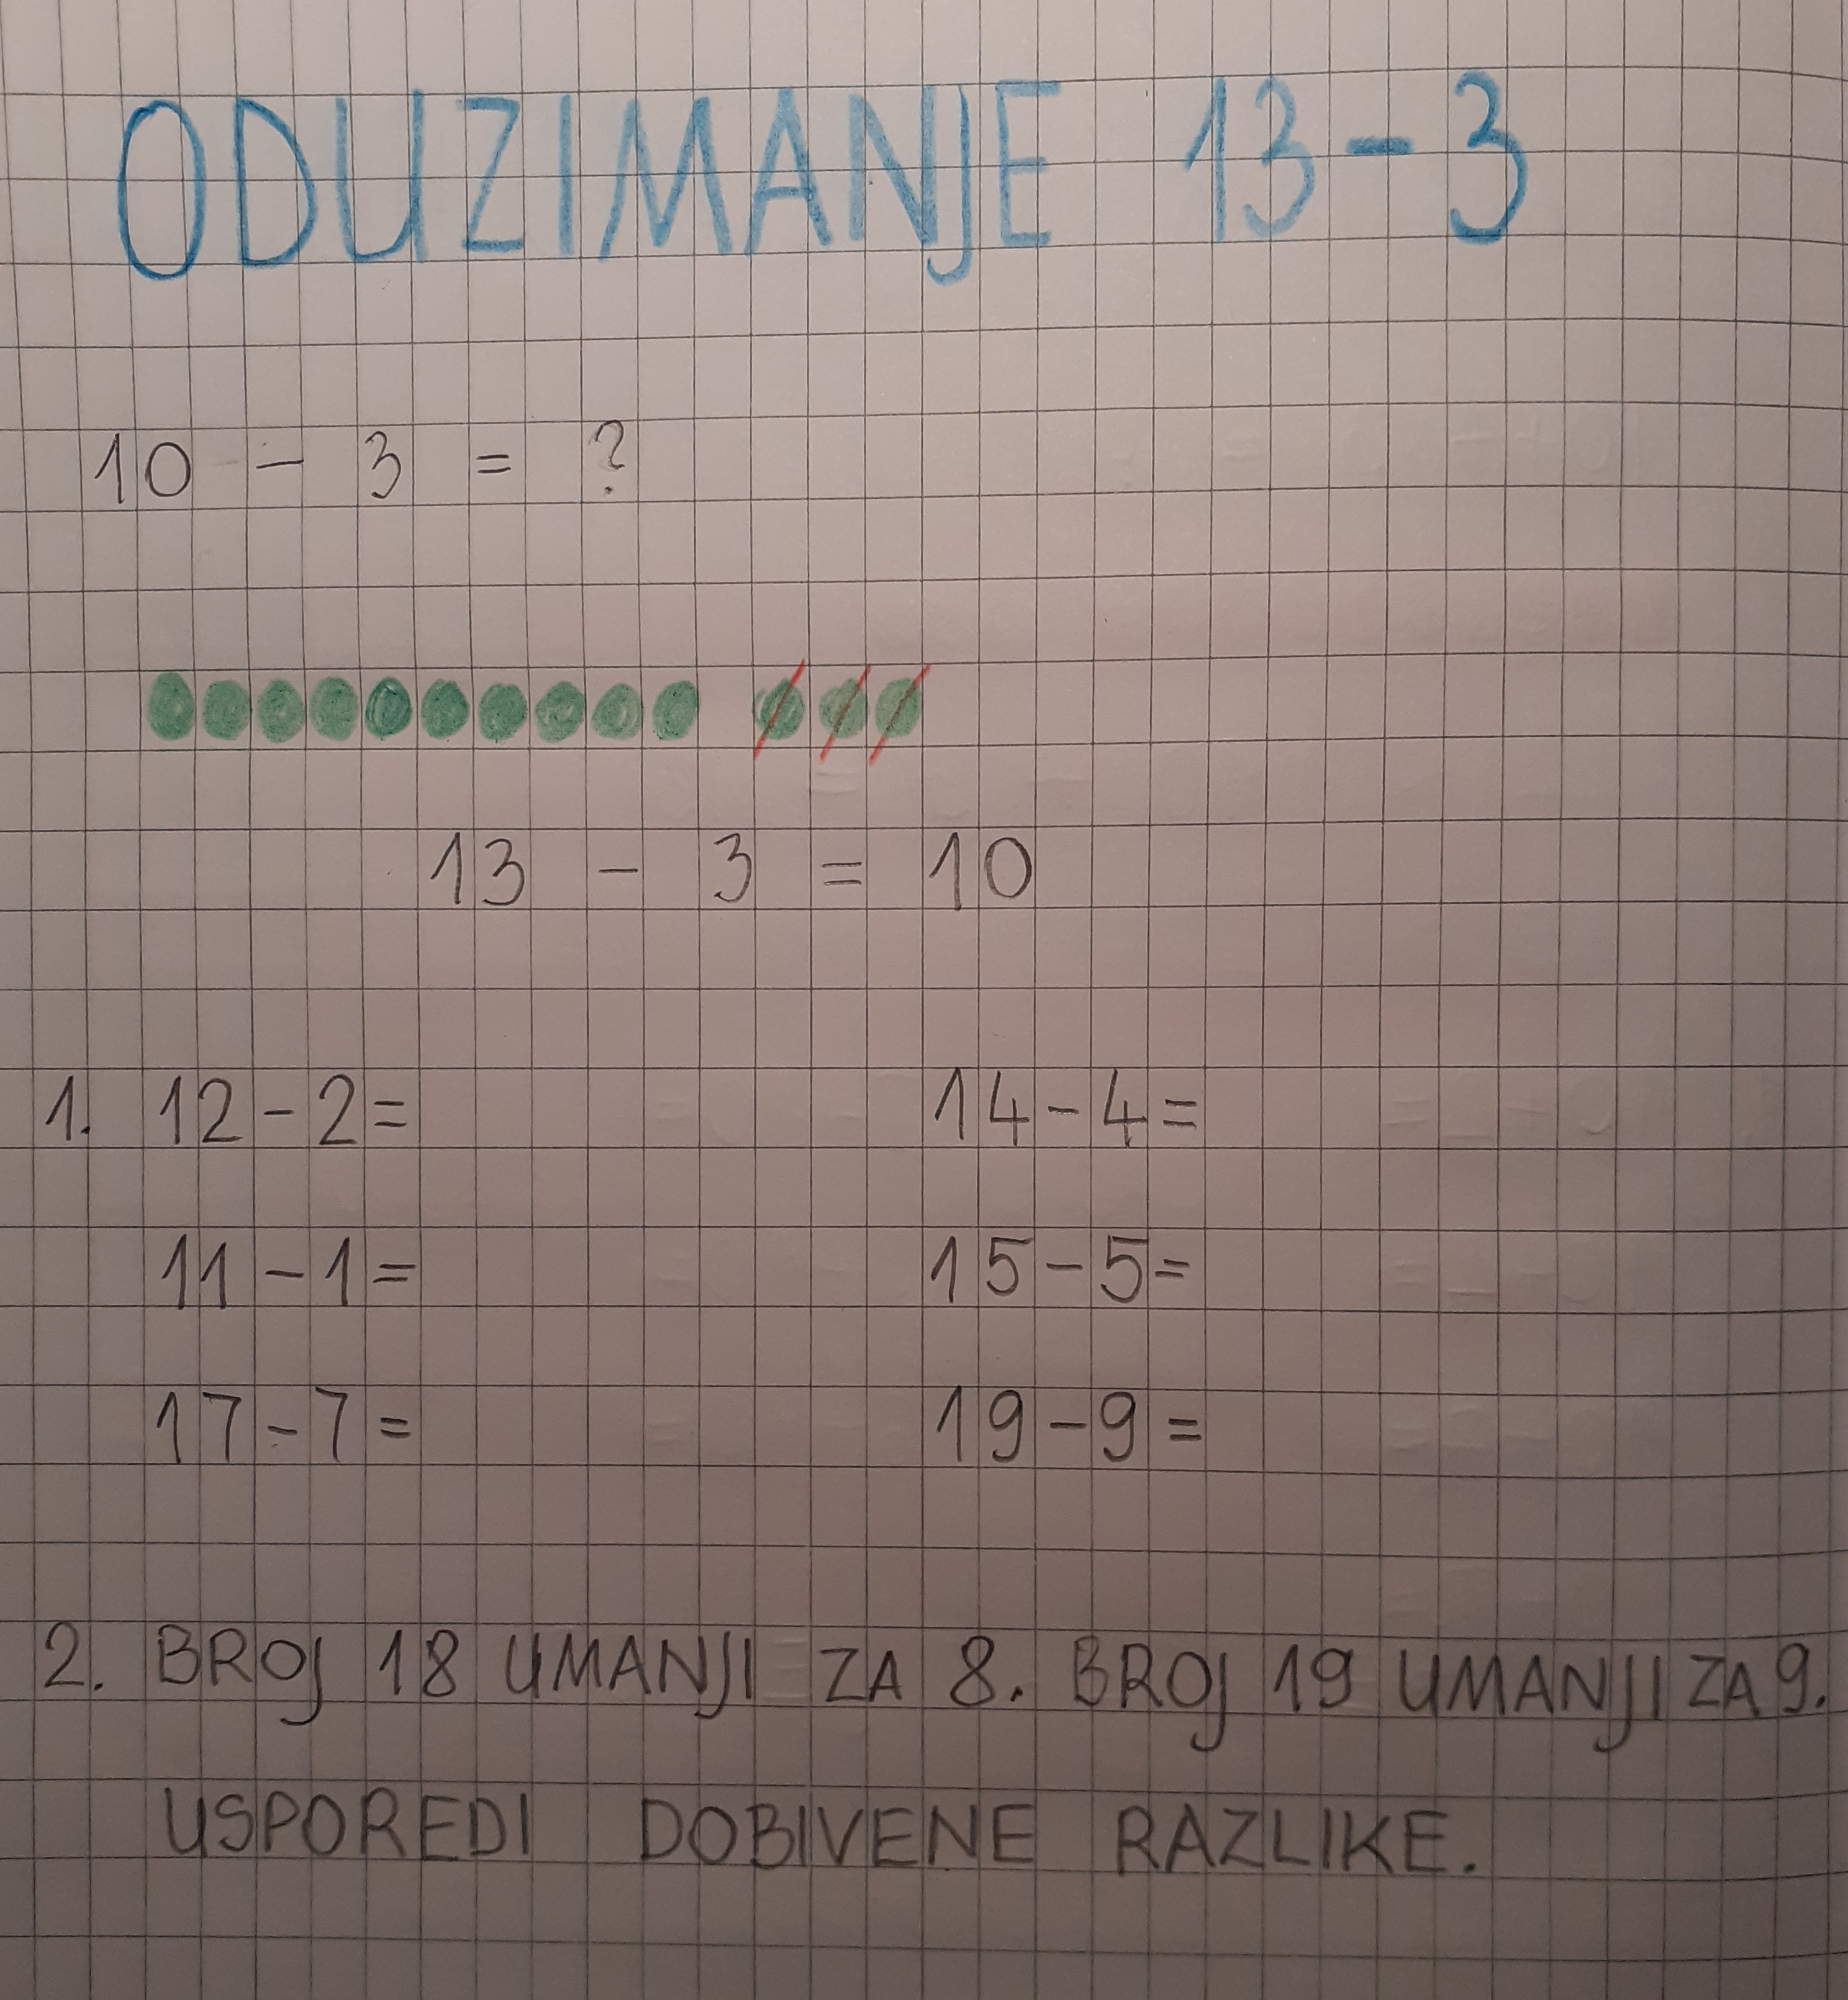 ODUZIMANJE 13-3
10 - 3 = ?
13 - 3 = 10
1. 12-2= 14-4=
11-1= 15-5=
17-7= 19-9=
2. BROJ 18 UMANJI ZA 8. BROJ 19 UMANJI ZA 9.
USPOREDI DOBIVENE RAZLIKE.